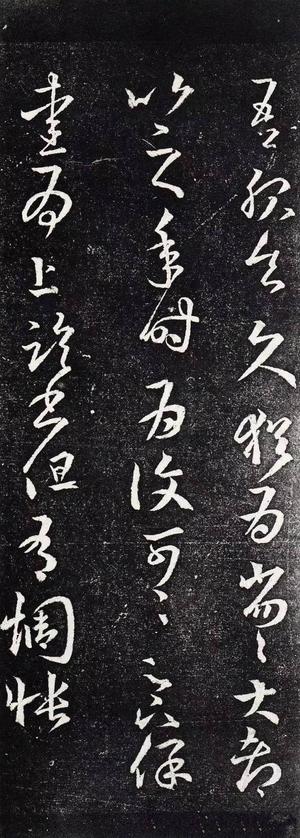 吾服食久猶為劣〻大都
比之年時為復可〻足下保
愛為上臨書但有惆悵